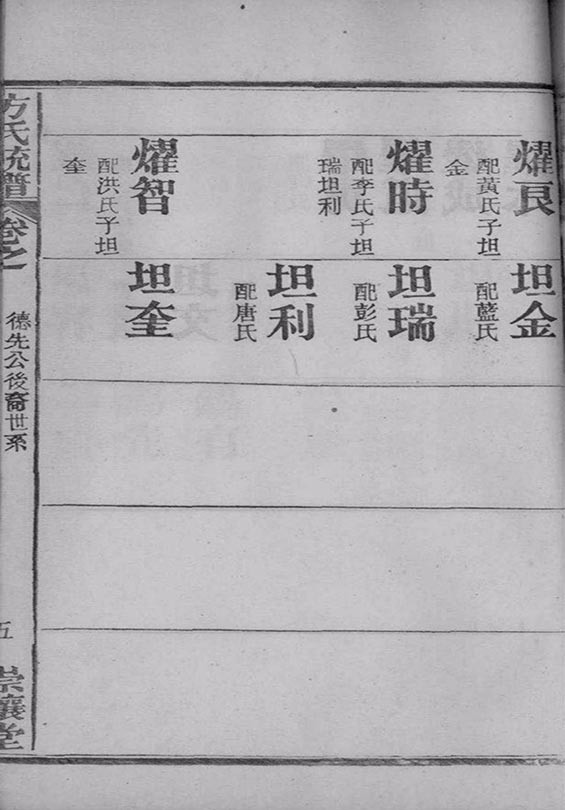 耀良
配黃氏子坦
金
耀時
配李氏子坦
瑞坦利
耀智
配洪氏子坦
奎
坦金
配藍氏
坦瑞
配彭氏
坦利
配唐氏
坦奎
方氏統譜
卷之一
德先公後裔世系
五
崇讓堂